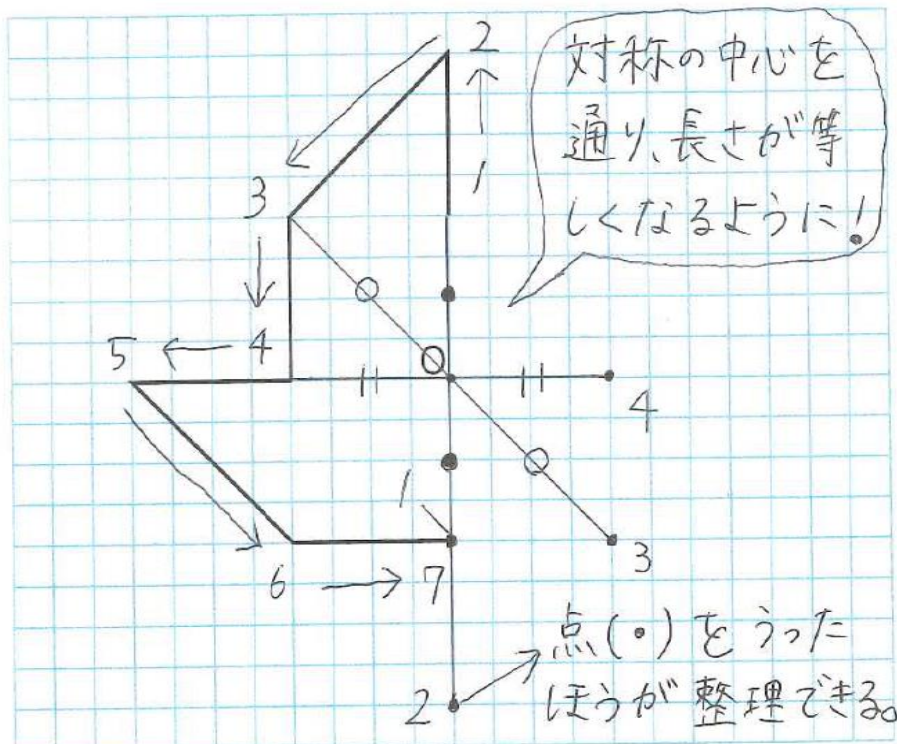 2
対称の中心を
通り、長さが等
しくなるように!
1
3
5 ← 4
4
1
3
6 → 7
点(・)をうった
2
ほうが整理できる。